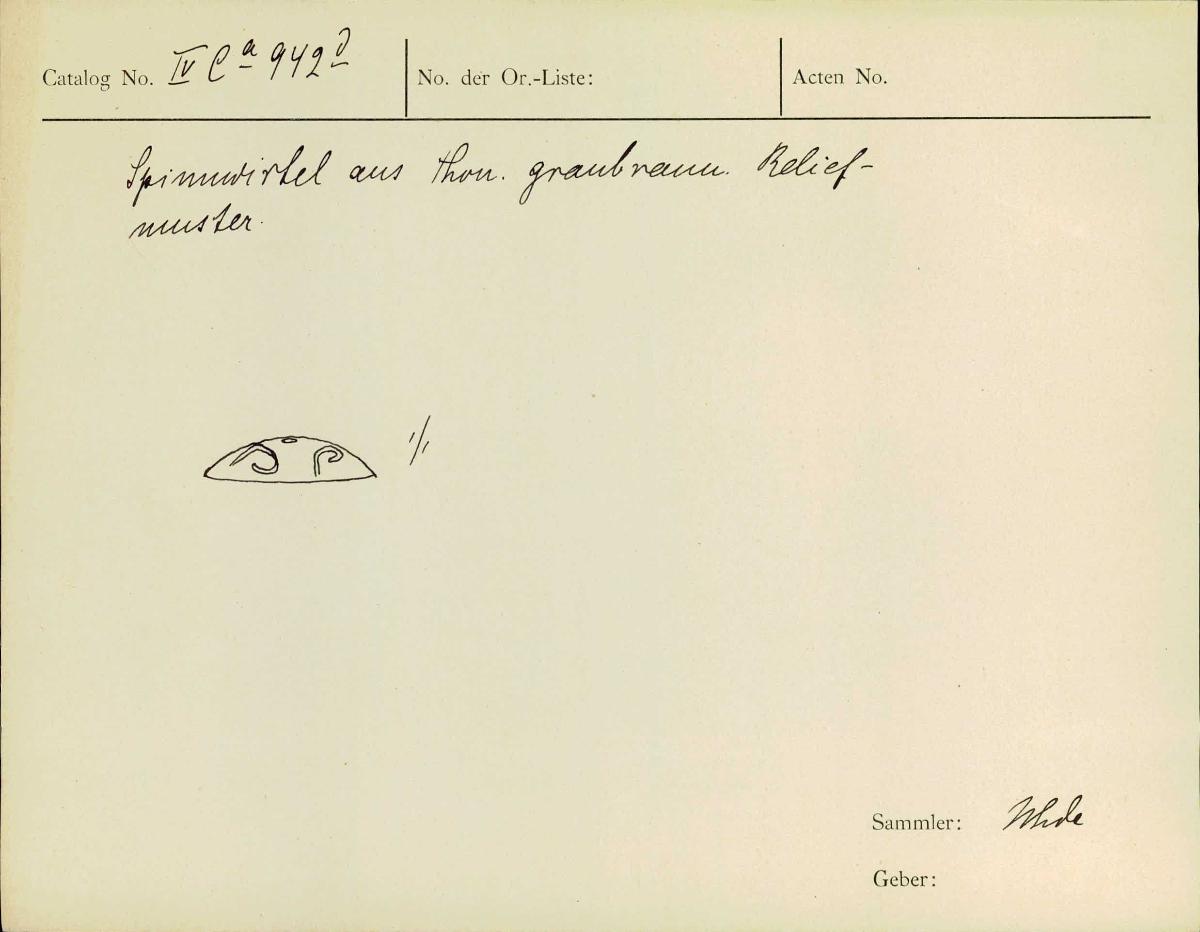 Catalog No. IV Ca 942 d
No. der Or.-Liste:
Acten No.
Spinnwirtel aus Thon. graubraun. Relief-
muster.
1/1
Sammler: Uhde
Geber: